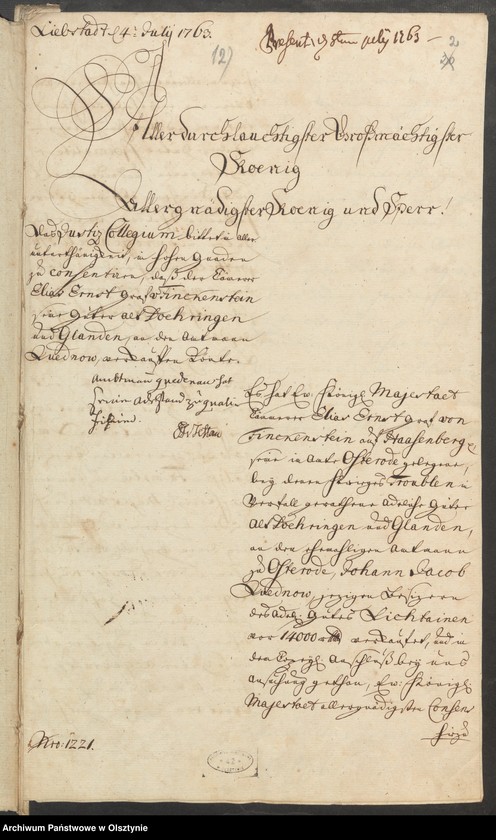 Liebstadt d 4t: July 1763.
Present. d 8ten July 1763 -
(2)
2
Allerdurchlauchtigster Großmächtigster
Koenig
Allergnädigster Koenig und Herr!
Das Justiz Collegium bittet in aller
unterthänigkeit, in hohen Gnaden
zu consentiren, daß der Cämerer
Elias Ernst Graf v Finckenstein
seine Güter Alt Boehringen
und Glanden, an den Amtmann
Quednow, verkauffen könte.
Amtmann quedenau hat
Es hat Ew: Königl Majestaet
Cämerer Elias Ernst Graf von
Finckenstein auf Haasenberg
seine in Amte Osterode gelegene,
bey denen Krieges Troublen in
Verfall gerathene Adeliche Güter
Alt Boehringen und Glanden,
an den ehemahligen Amtmann
zu Osterode, Johann Jacob
Quednow, jezigen Besizern
des Adel: Gutes Lichtainen
vor 14000 verkaufet, und in
den Anschluß bey uns
Ansuchung gethan, Ew: Königl
Majestaet allergnädigsten Consens
Nro: 1221.
Archiwum Państwowe w Olsztynie